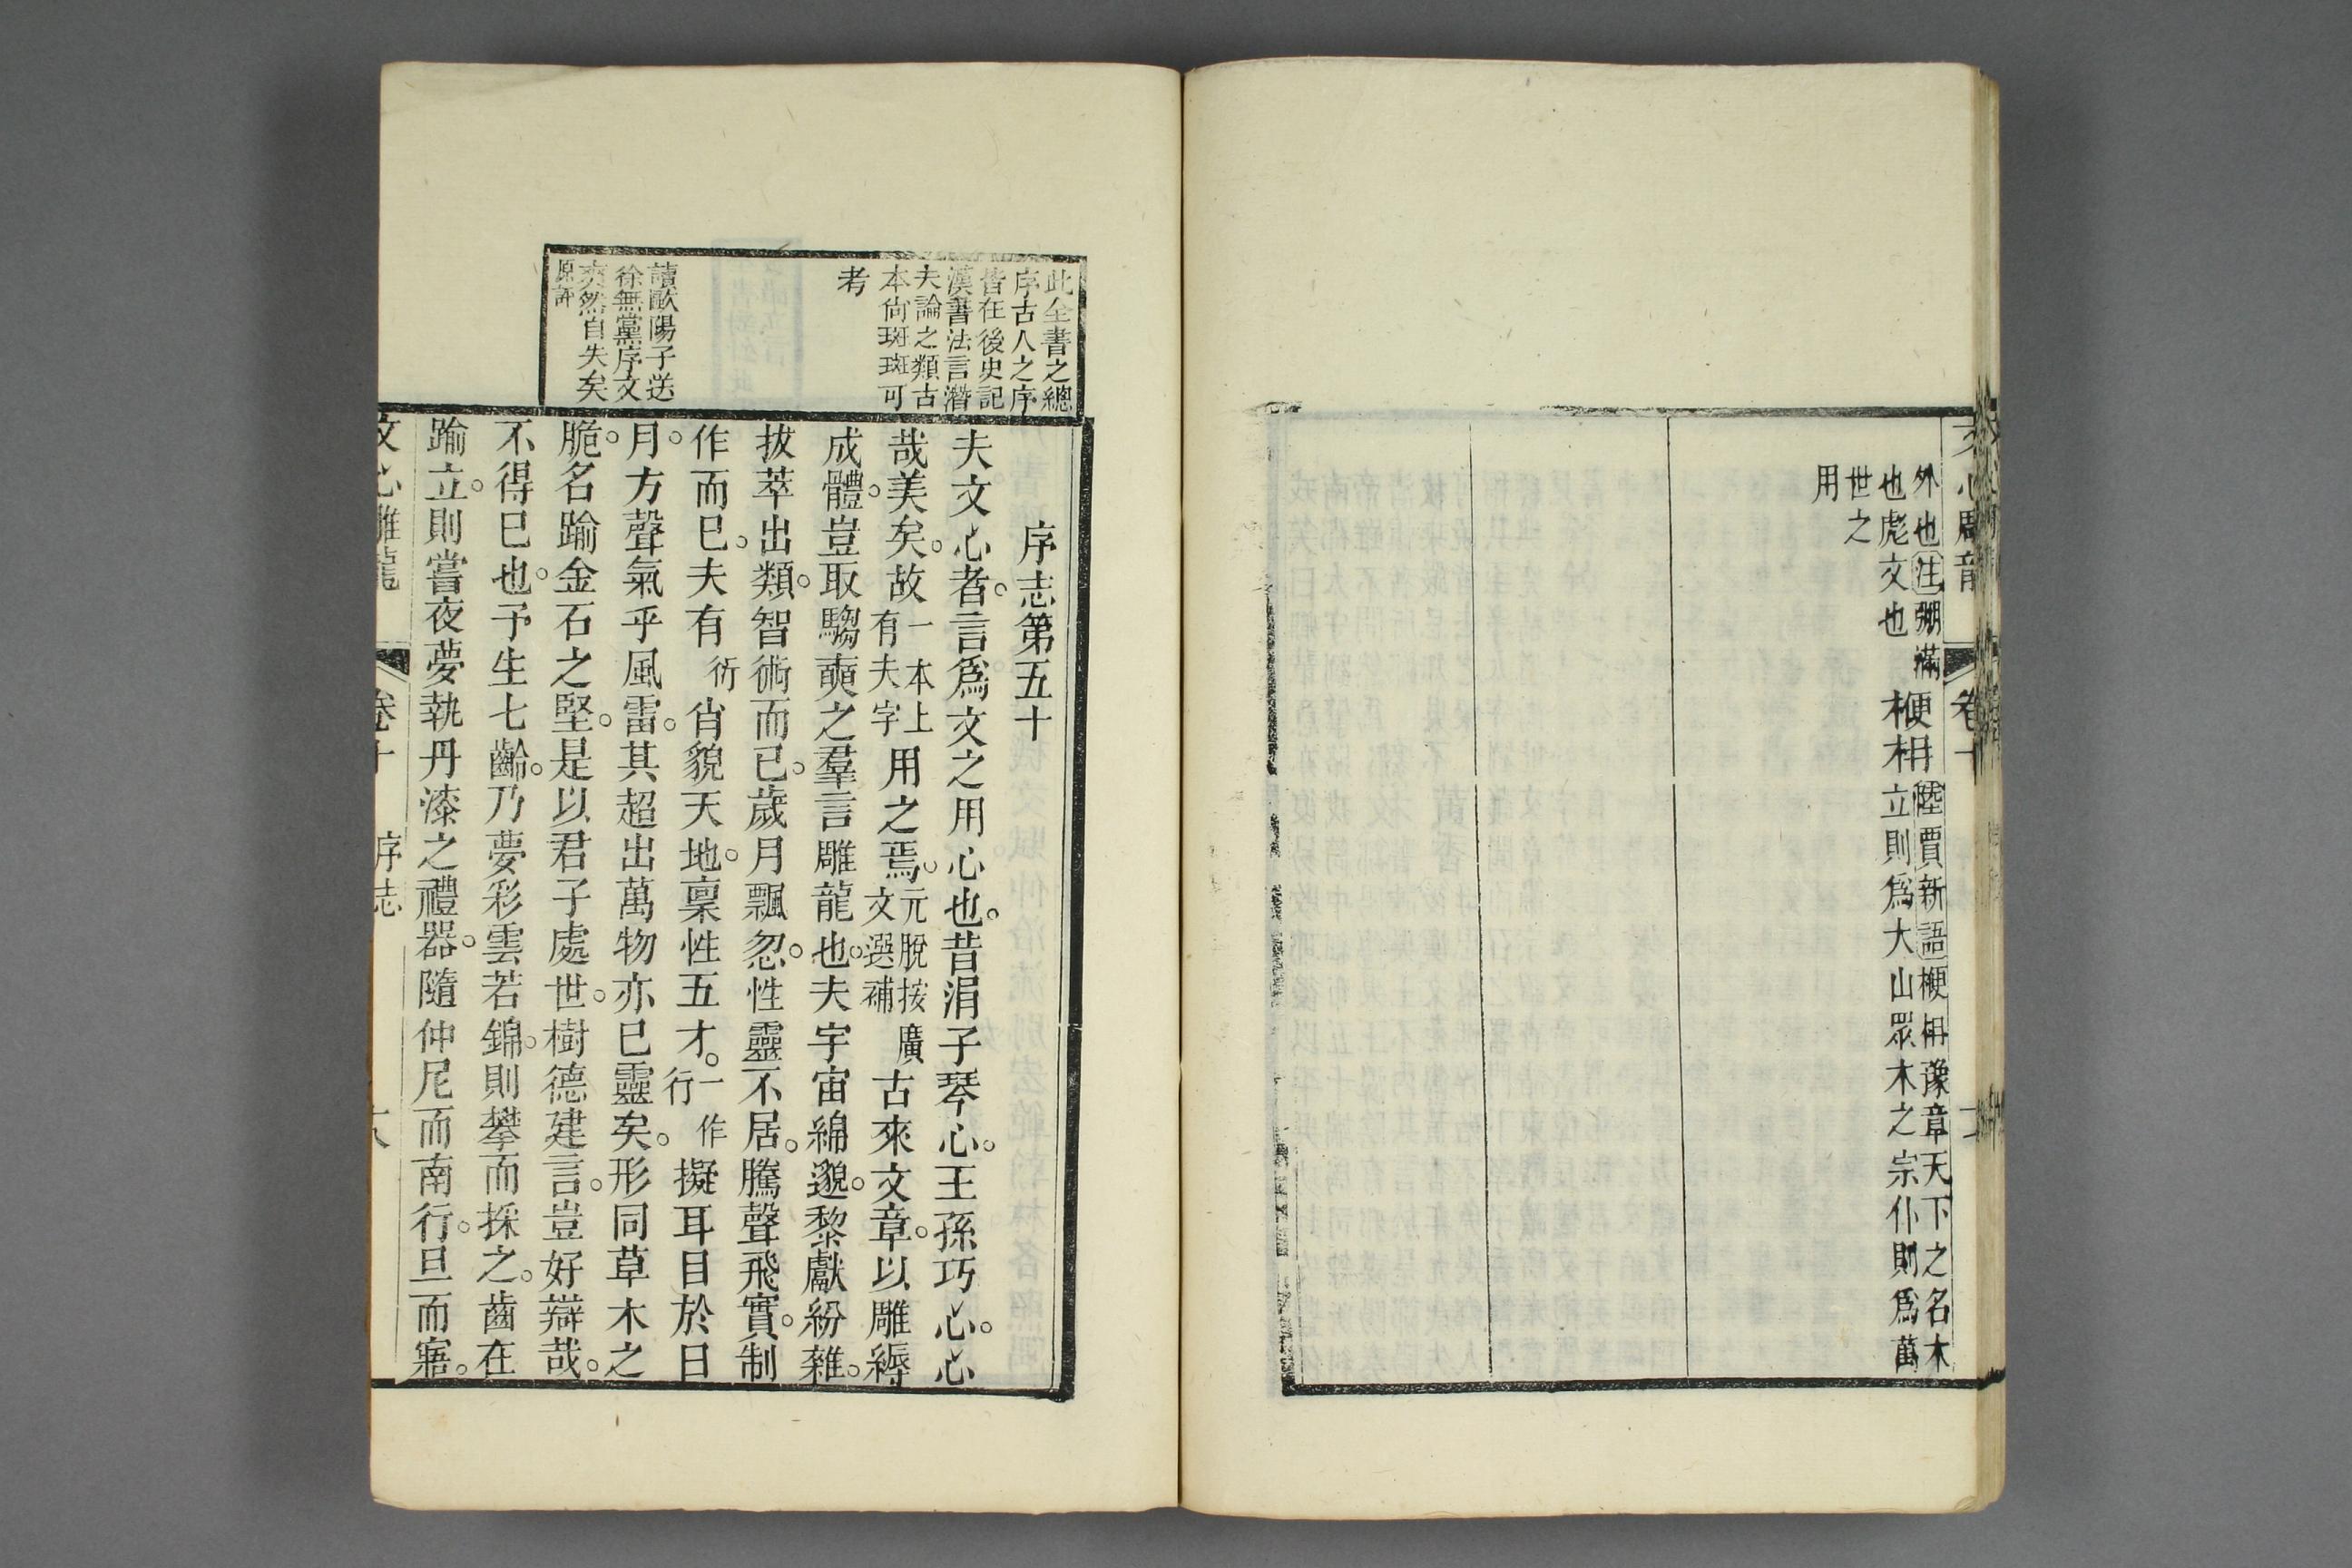 外也注弸滿
也彪文也
楩枏
陸賈新語楩枏豫章天下之名木
立則爲大山眾木之宗仆則爲萬
世之
用
此全書之總
序古人之序
皆在後史記
漢書法言潛
夫論之類古
本尙斑斑可
考
讀歐陽子送
徐無黨序文
爽然自失矣
原評
序志第五十
夫文心者。言爲文之用心也。昔涓子琴心。王孫巧心。心
哉美矣。故一本上有夫字用之焉。元脫按廣文選補古來文章。以雕縟
成體。豈取騶奭之羣言雕龍也。夫宇宙綿邈。黎獻紛雜。
拔萃出類。智術而已。歲月飄忽。性靈不居。騰聲飛實。制
作而已。夫有衍肖貌天地。稟性五才。一作行擬耳目於日
月。方聲氣乎風雷。其超出萬物亦已靈矣。形同草木之
脆。名踰金石之堅。是以君子處世。樹德建言。豈好辯哉。
不得已也。予生七齡。乃夢彩雲若錦。則攀而採之。齒在
踰立。則嘗夜夢執丹漆之禮器。隨仲尼而南行。旦而寤。
文心雕龍 卷十 序志